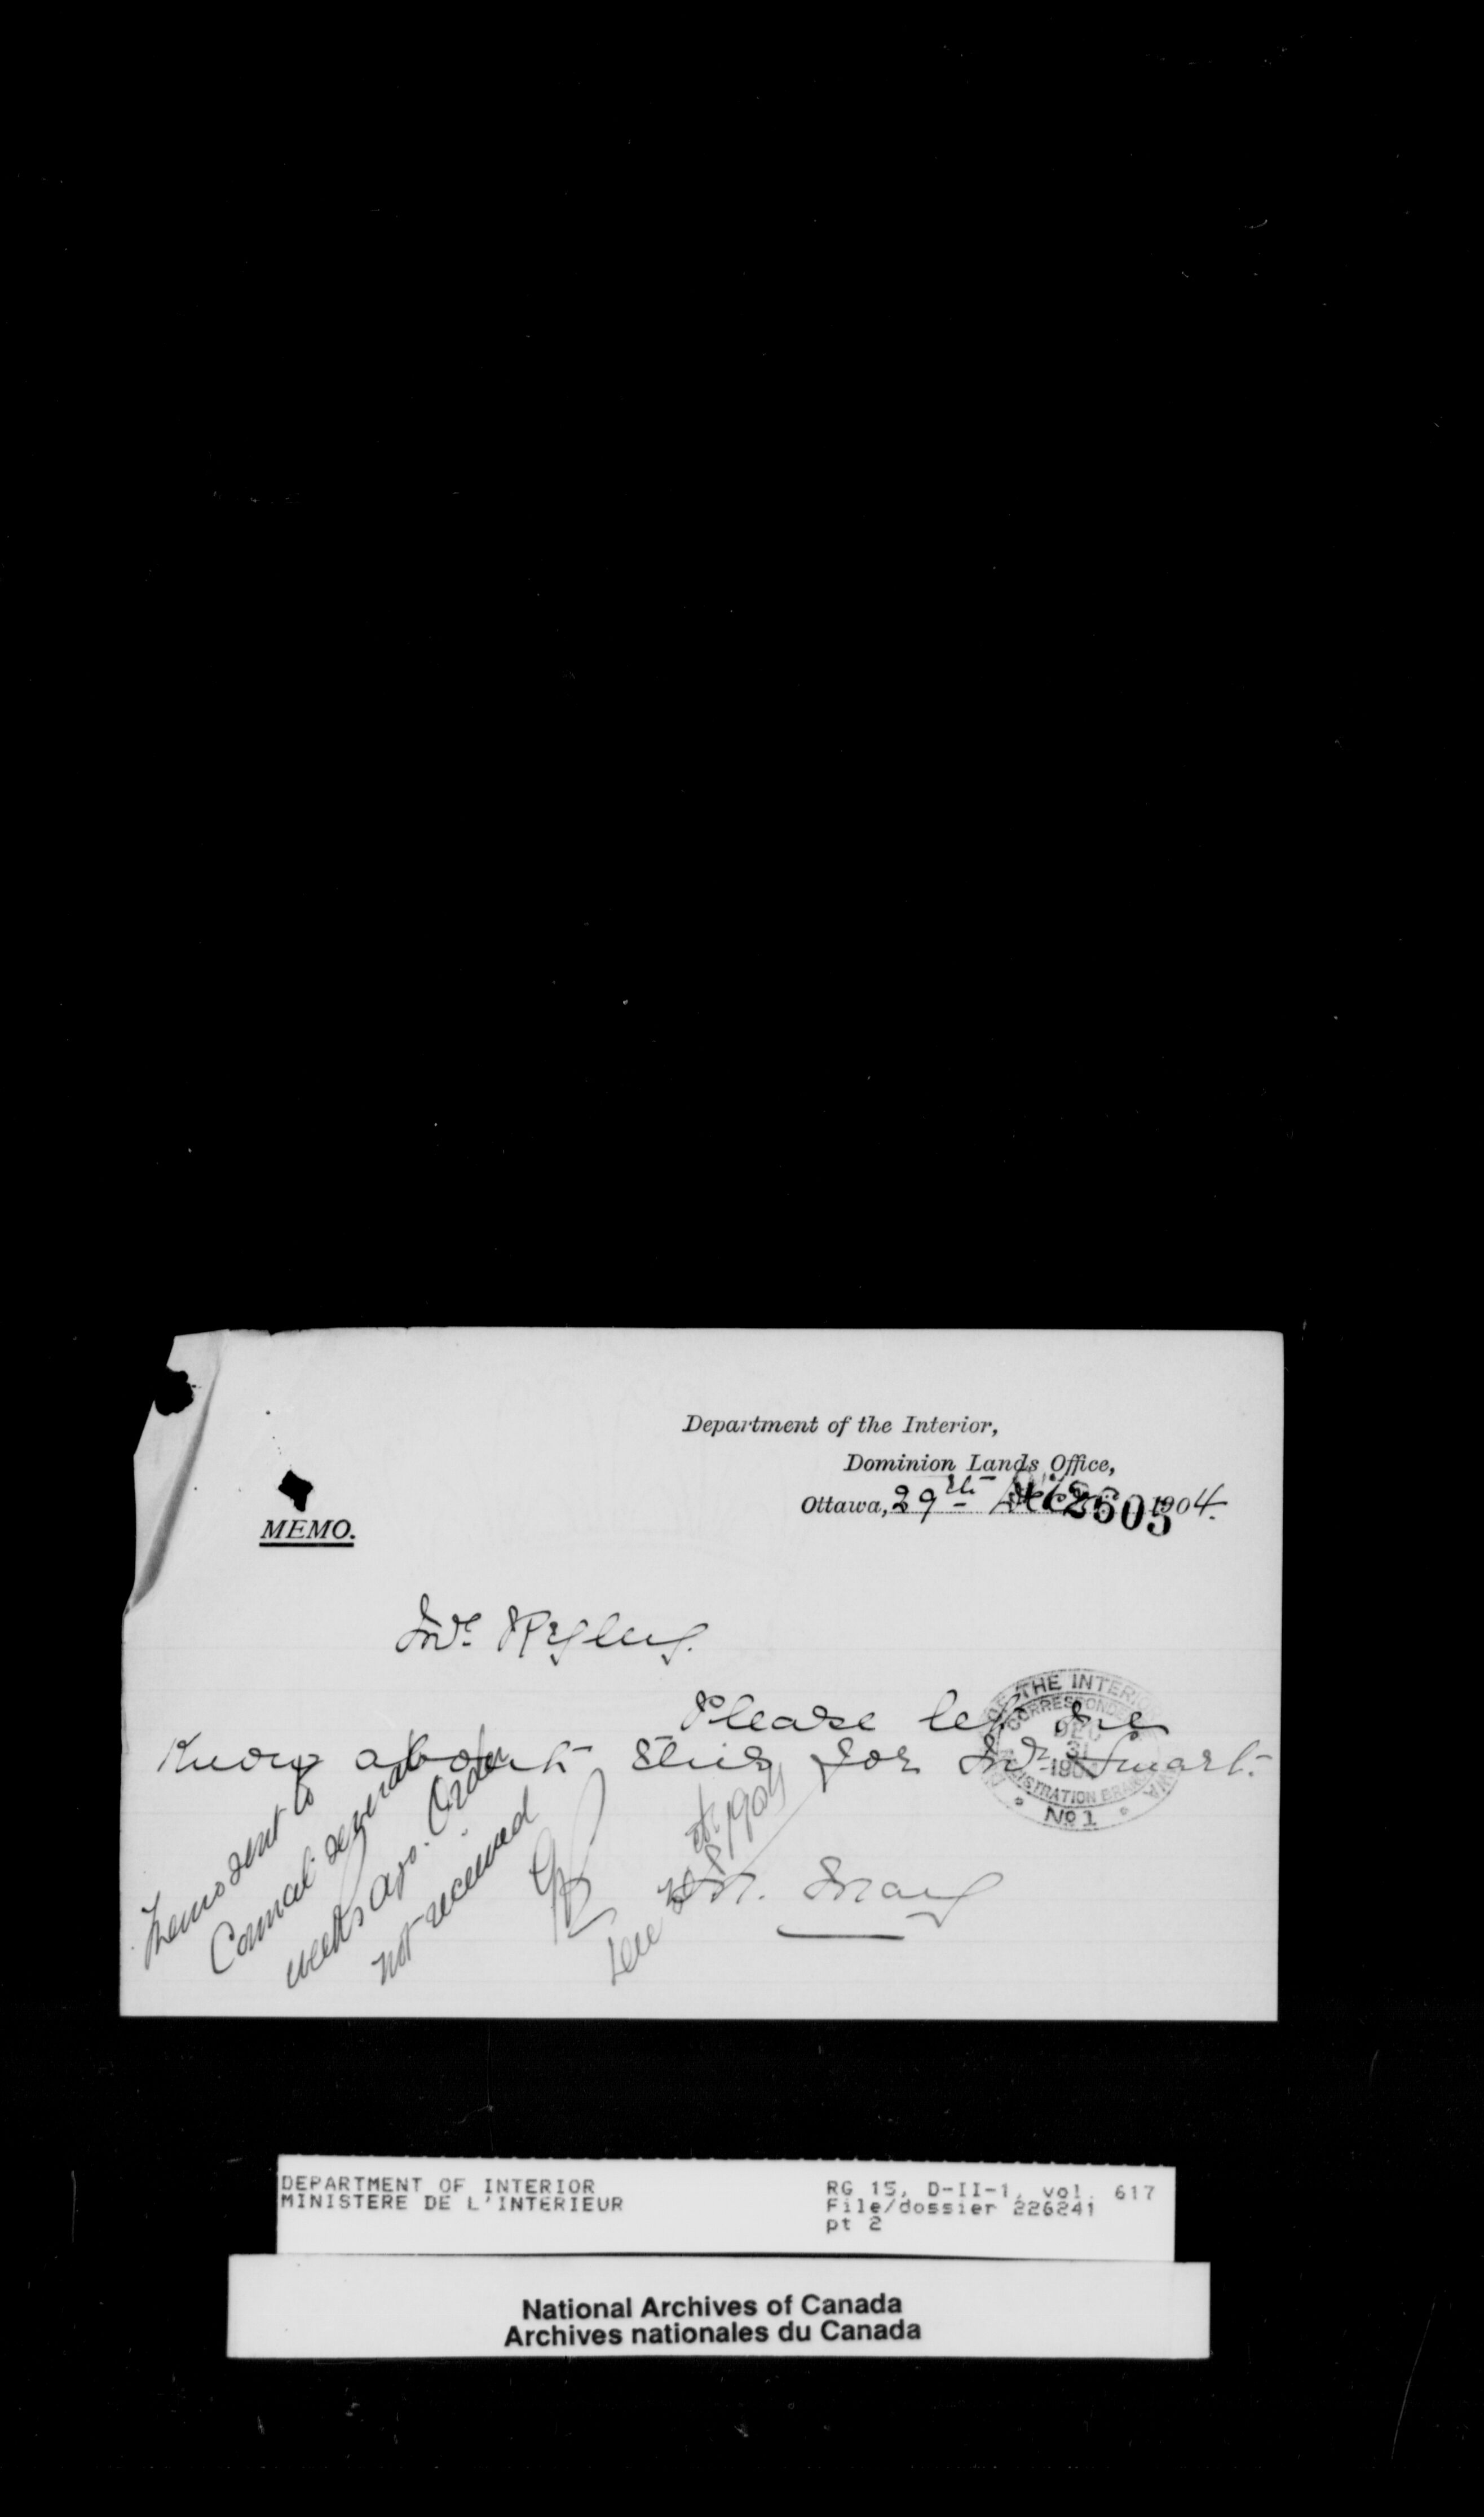 Department of the Interior,
Dominion Lands Office,
Ottawa, 29th Dec 1904.
MEMO.
Mr.
Please let me
Know about this for Mr. Smart.
Memo sent to
Council several
weeks ago. Order
not received
1904
OF THE INTERIOR
CORRESPONDENCE
DEC
31
190
REGISTRATION BRANCH
No 1
DEPARTMENT OF INTERIOR
MINISTERE DE L'INTERIEUR
RG 15, D-II-1, vol. 617
File/dossier 226241
pt 2
National Archives of Canada
Archives nationales du Canada